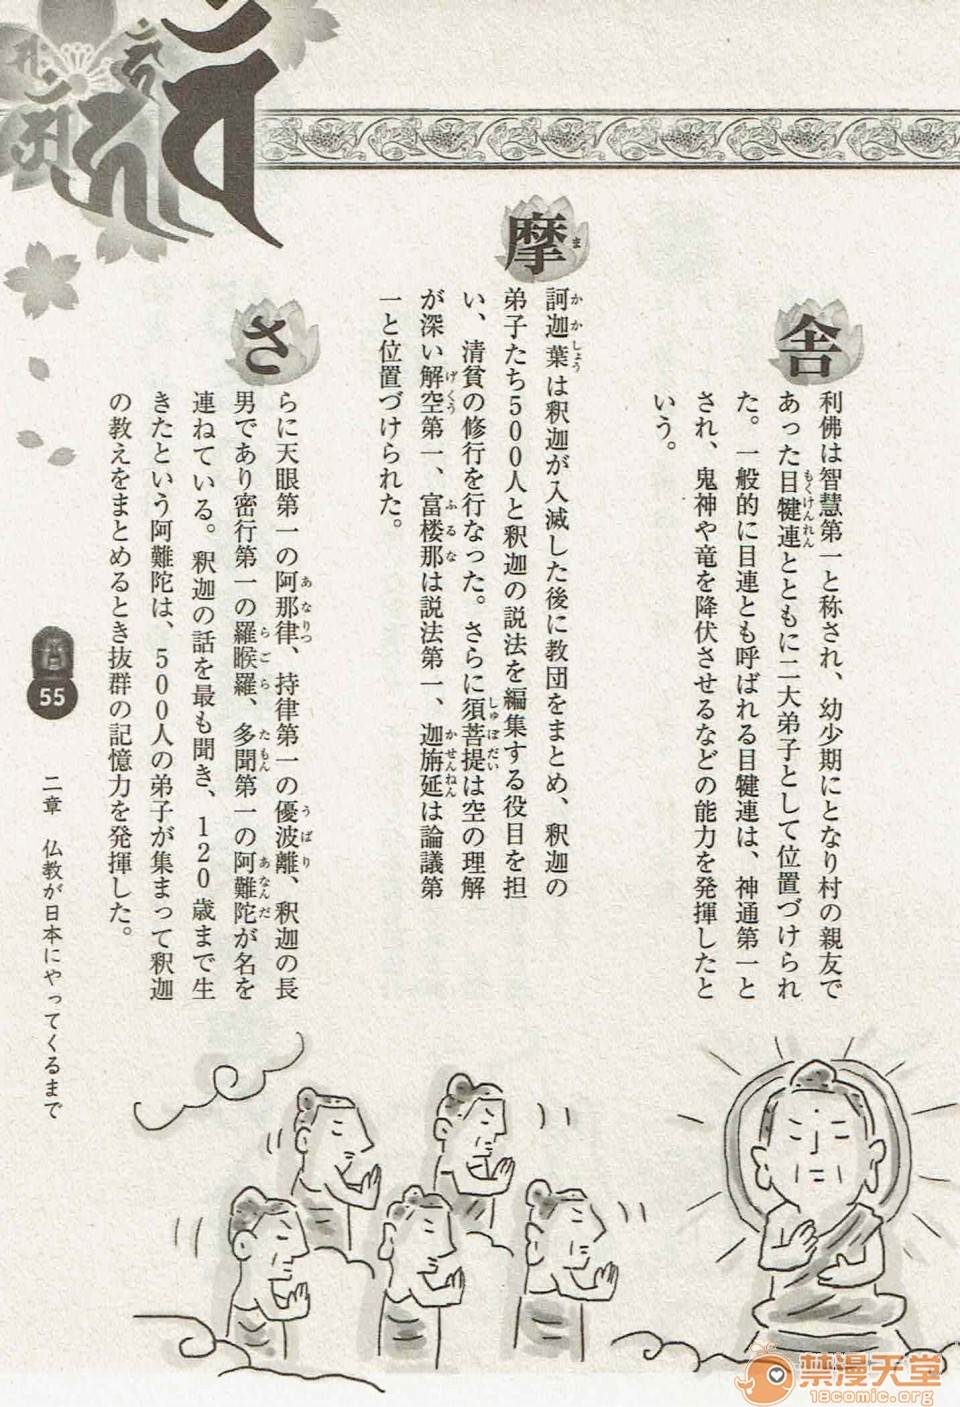 舎利佛は智慧第一と称され、幼少期にとなり村の親友で
あった目犍連とともに二大弟子として位置づけられ
た。一般的に目連とも呼ばれる目犍連は、神通第一と
され、鬼神や竜を降伏させるなどの能力を発揮したと
いう。
摩訶迦葉は釈迦が入滅した後に教団をまとめ、釈迦の
弟子たち500人と釈迦の説法を編集する役目を担
い、清貧の修行を行なった。さらに須菩提は空の理解
が深い解空第一、富楼那は説法第一、迦旃延は論議第
一と位置づけられた。
さらに天眼第一の阿那律、持律第一の優波離、釈迦の長
男であり密行第一の羅睺羅、多聞第一の阿難陀が名を
連ねている。釈迦の話を最も聞き、120歳まで生
きたという阿難陀は、500人の弟子が集まって釈迦
の教えをまとめるとき抜群の記憶力を発揮した。
55
二章 仏教が日本にやってくるまで
禁漫天堂
18comic.org